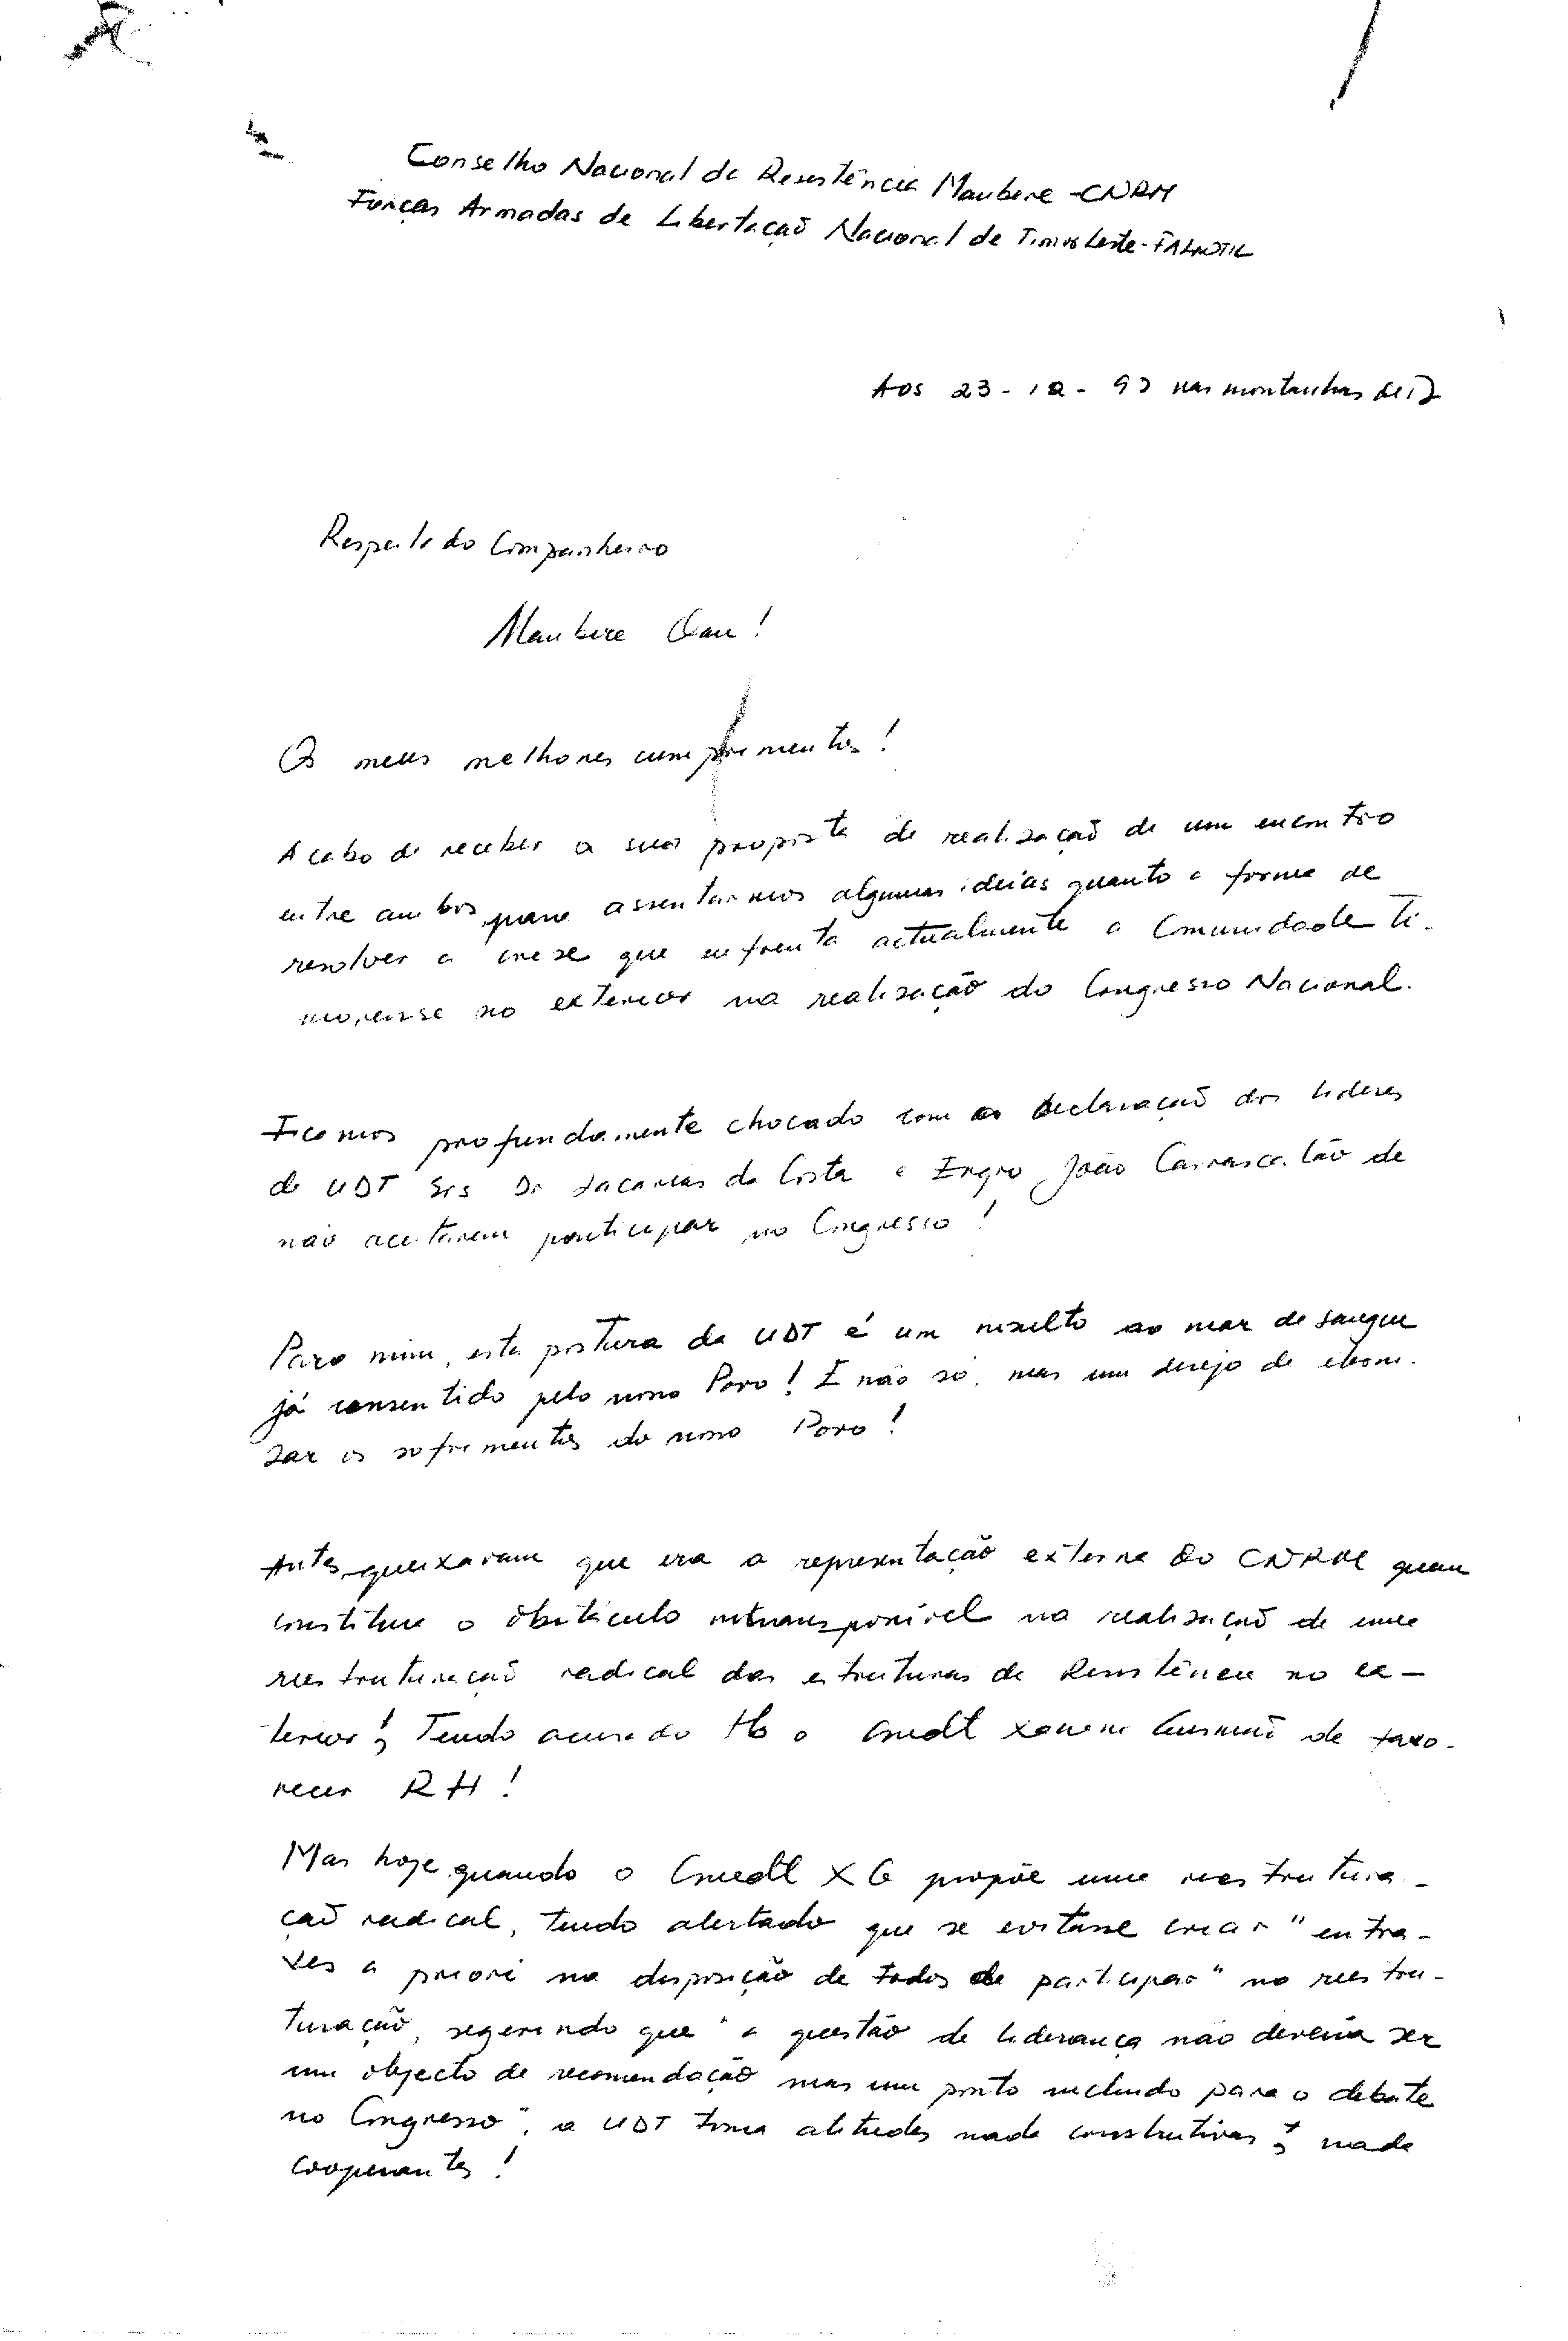 Conselho Nacional da Resistência Maubere - CNRM
Forças Armadas de Libertação Nacional de Timor Leste - FALINTIL
Aos 23 - 12 - 97 nas montanhas de
Respeitado Companheiro
Maubere Oan!
Os meus melhores cumprimentos!
Acabo de receber a sua proposta de realização de um encontro
entre ambos para assentarmos algumas ideias quanto a forma de
resolver a crise que enfrenta actualmente a Comunidade Ti-
morense no exterior na realização do Congresso Nacional.
Ficamos profundamente chocado com a declaração dos lideres
da UDT Srs Dr. Zacarias da Costa e Engro João Carrascalão de
não aceitarem participar no Congresso!
Para mim, esta postura da UDT é um insulto ao mar de sangue
já consentido pelo nosso Povo! E não só, mas um desejo de eterni-
zar os sofrimentos do nosso Povo!
Antes queixavam que era a representação externa do CNRM quem
constitue o obstáculo intransponível na realização de uma
reestruturação radical das estruturas da Resistência no ex-
terior! Tendo acusado o Cmdt Xanana Gusmão de favo-
recer RH!
Mas hoje quando o Cmdt XG propõe uma reestrutura-
ção radical, tendo alertado que se evitasse criar "entra-
ves a priori na disposição de todos de participar" na reestru-
turação, segerindo que "a questão de liderança não deveria ser
um objecto de recomendação mas um ponto incluido para o debate
no Congresso", a UDT toma atitudes nada construtivas e nada
cooperantes!